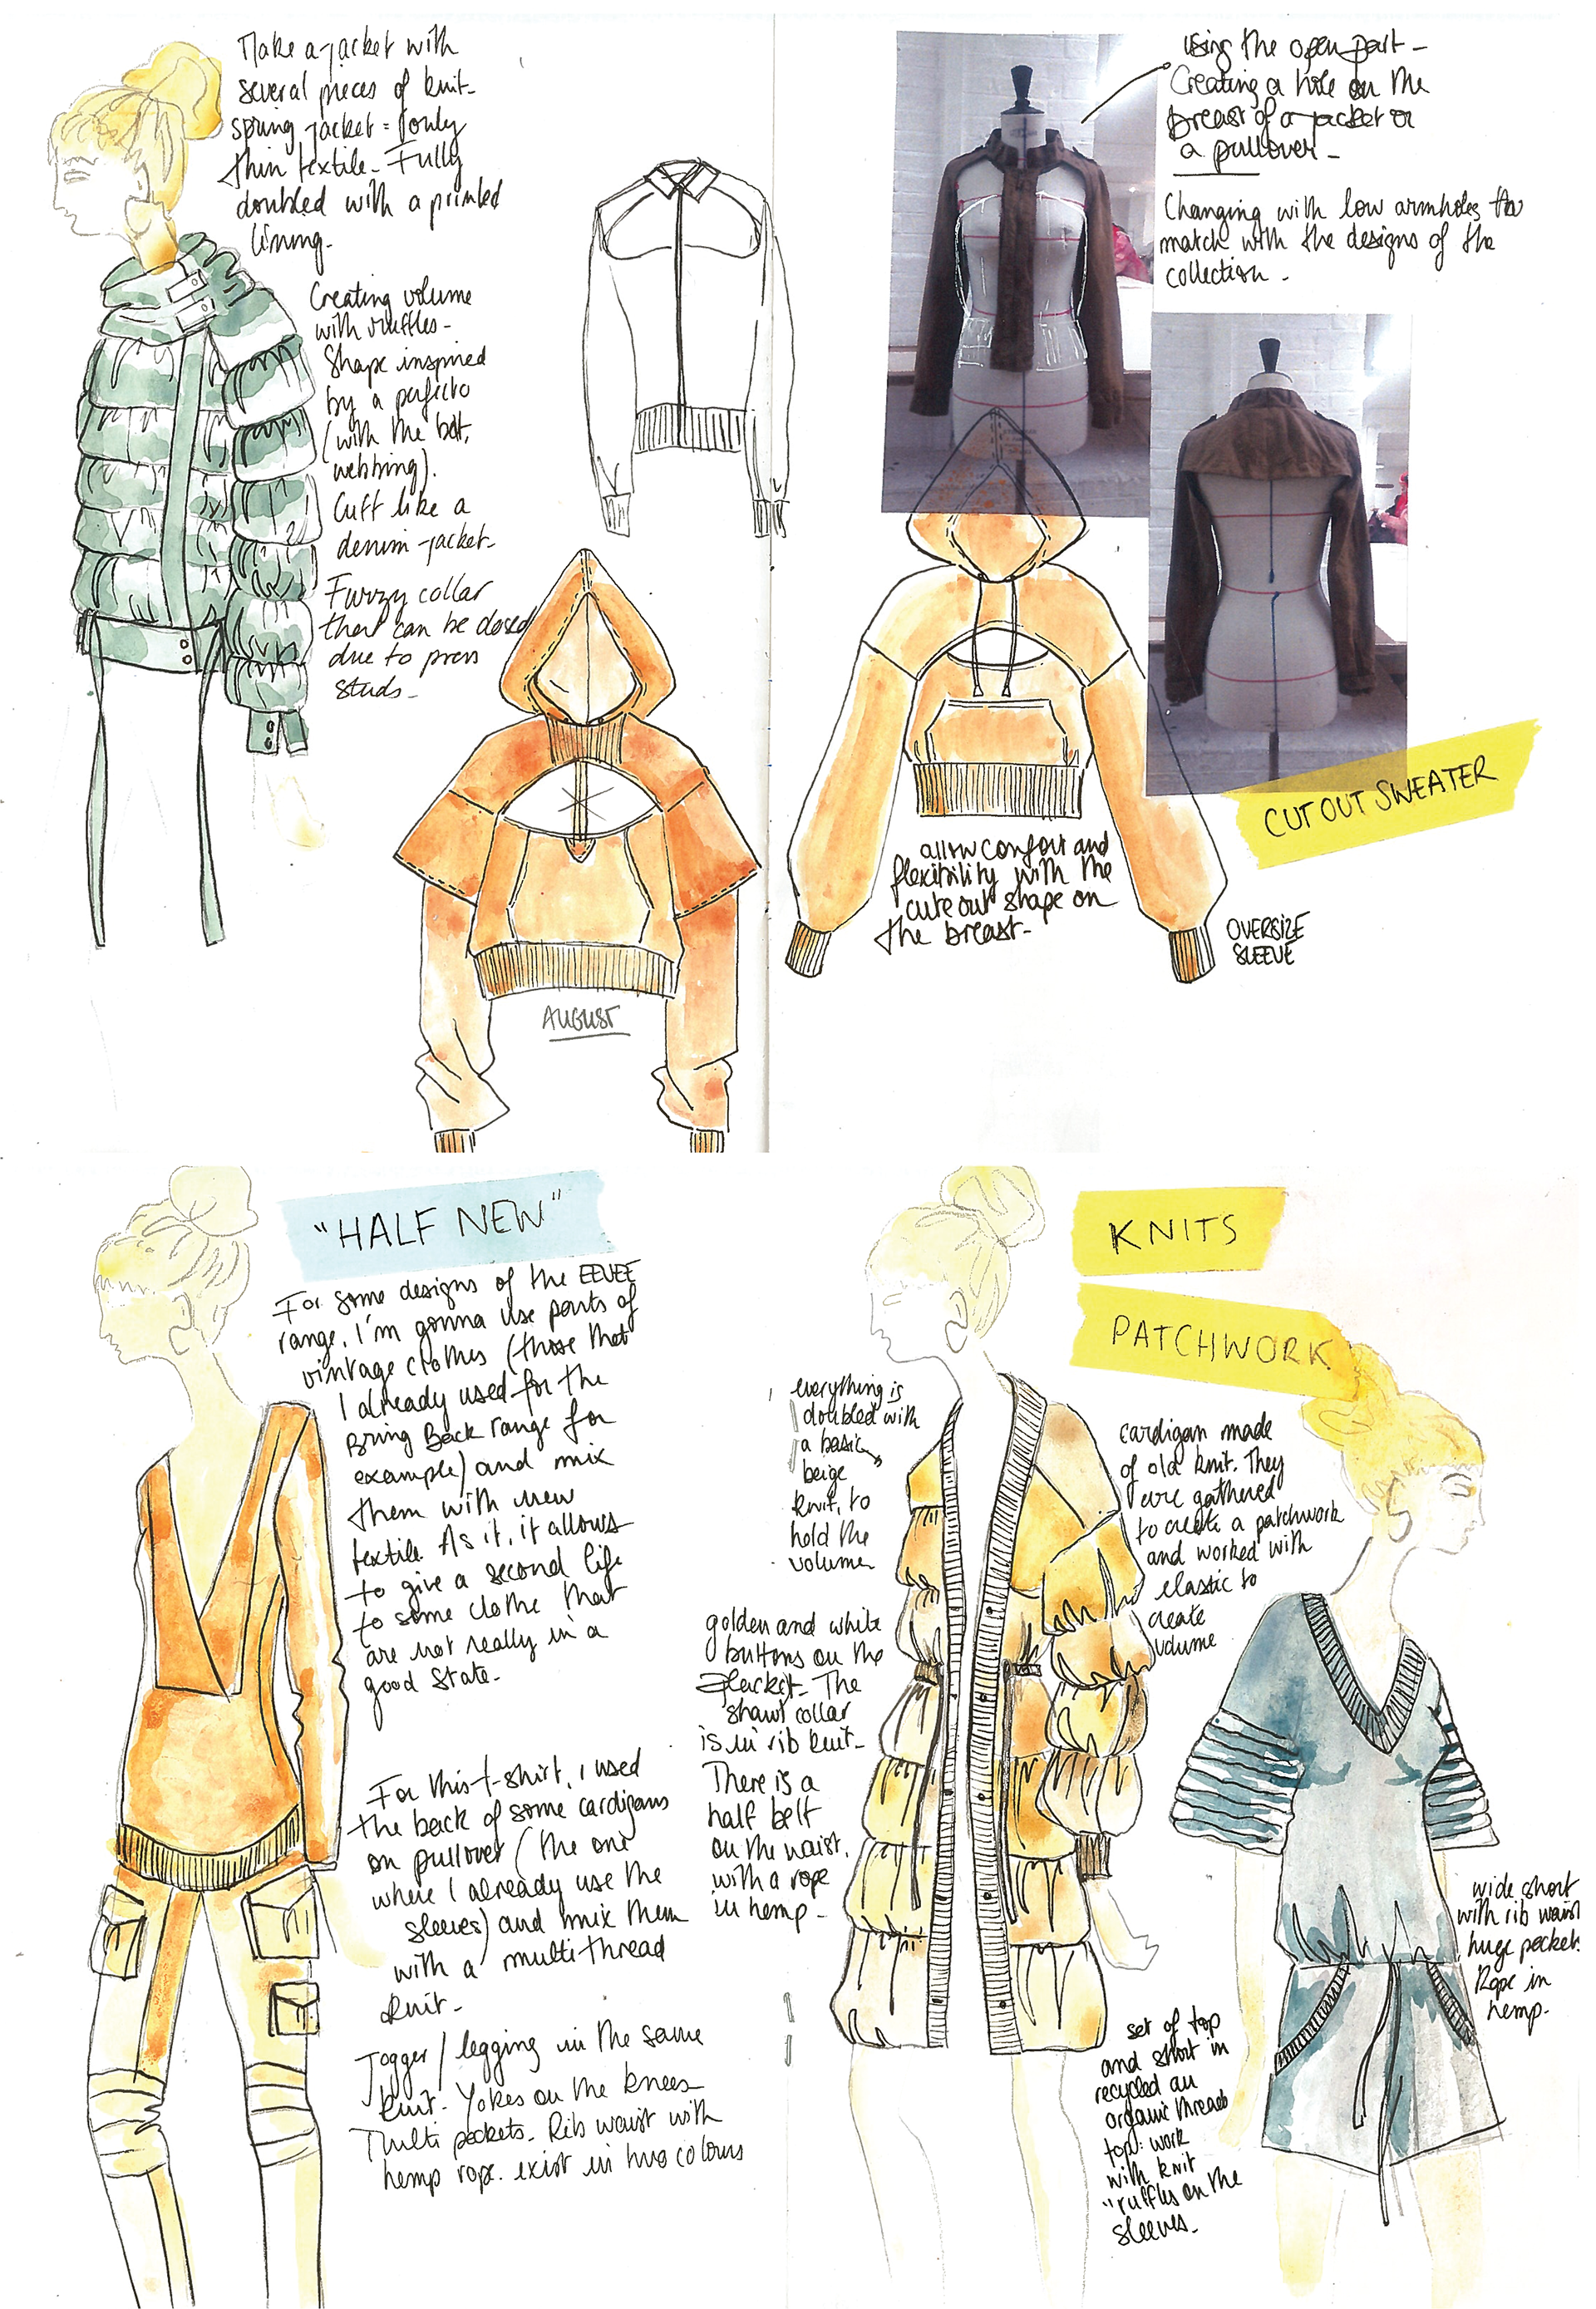 Make a jacket with
several pieces of knit-
spring jacket = (only
thin textile - Fully
doubled with a printed
lining.
Creating volume
with ruffles -
Shape inspired
by a perfecto
(with the belt,
webbing).
Cuff like a
denim-jacket-
Furzy collar
that can be closed
due to press
studs -
AUGUST
using the open part -
Creating a hole on the
breast of a jacket or
a pullover -
Changing with low armholes to
match with the designs of the
collection -
CUT OUT SWEATER
allow confort and
flexibility with the
cute out shape on
the breast -
OVERSIZE
SLEEVE
"HALF NEW"
For some designs of the EEVEE
range, I'm gonna use parts of
vintage clothes (those that
I already used for the
Bring Back range for
example) and mix
them with new
textile. As it, it allows
to give a second life
to some clothe that
are not really in a
good state -
For this t-shirt, I used
the back of some cardigans
on pullover (the one
where I already use the
sleeves) and mix them
with a multi thread
knit -
Jogger / legging in the same
knit - Yokes on the knees
Multi pockets - Rib waist with
hemp rope. exist in two colours
KNITS
PATCHWORK
everything is
doubled with
a basic
beige
knit, to
hold the
volume
cardigan made
of old knit. They
are gathered
to create a patchwork
and worked with
elastic to
create
volume
golden and white
buttons on the
placket - The
shawl collar
is in rib knit -
There is a
half belt
on the waist,
with a rope
in hemp -
wide short
with rib waist
huge pocket.
Rope in
hemp -
set of top
and short in
recycled an
organic threads
top: work
with knit
"ruffles on the
sleeves -